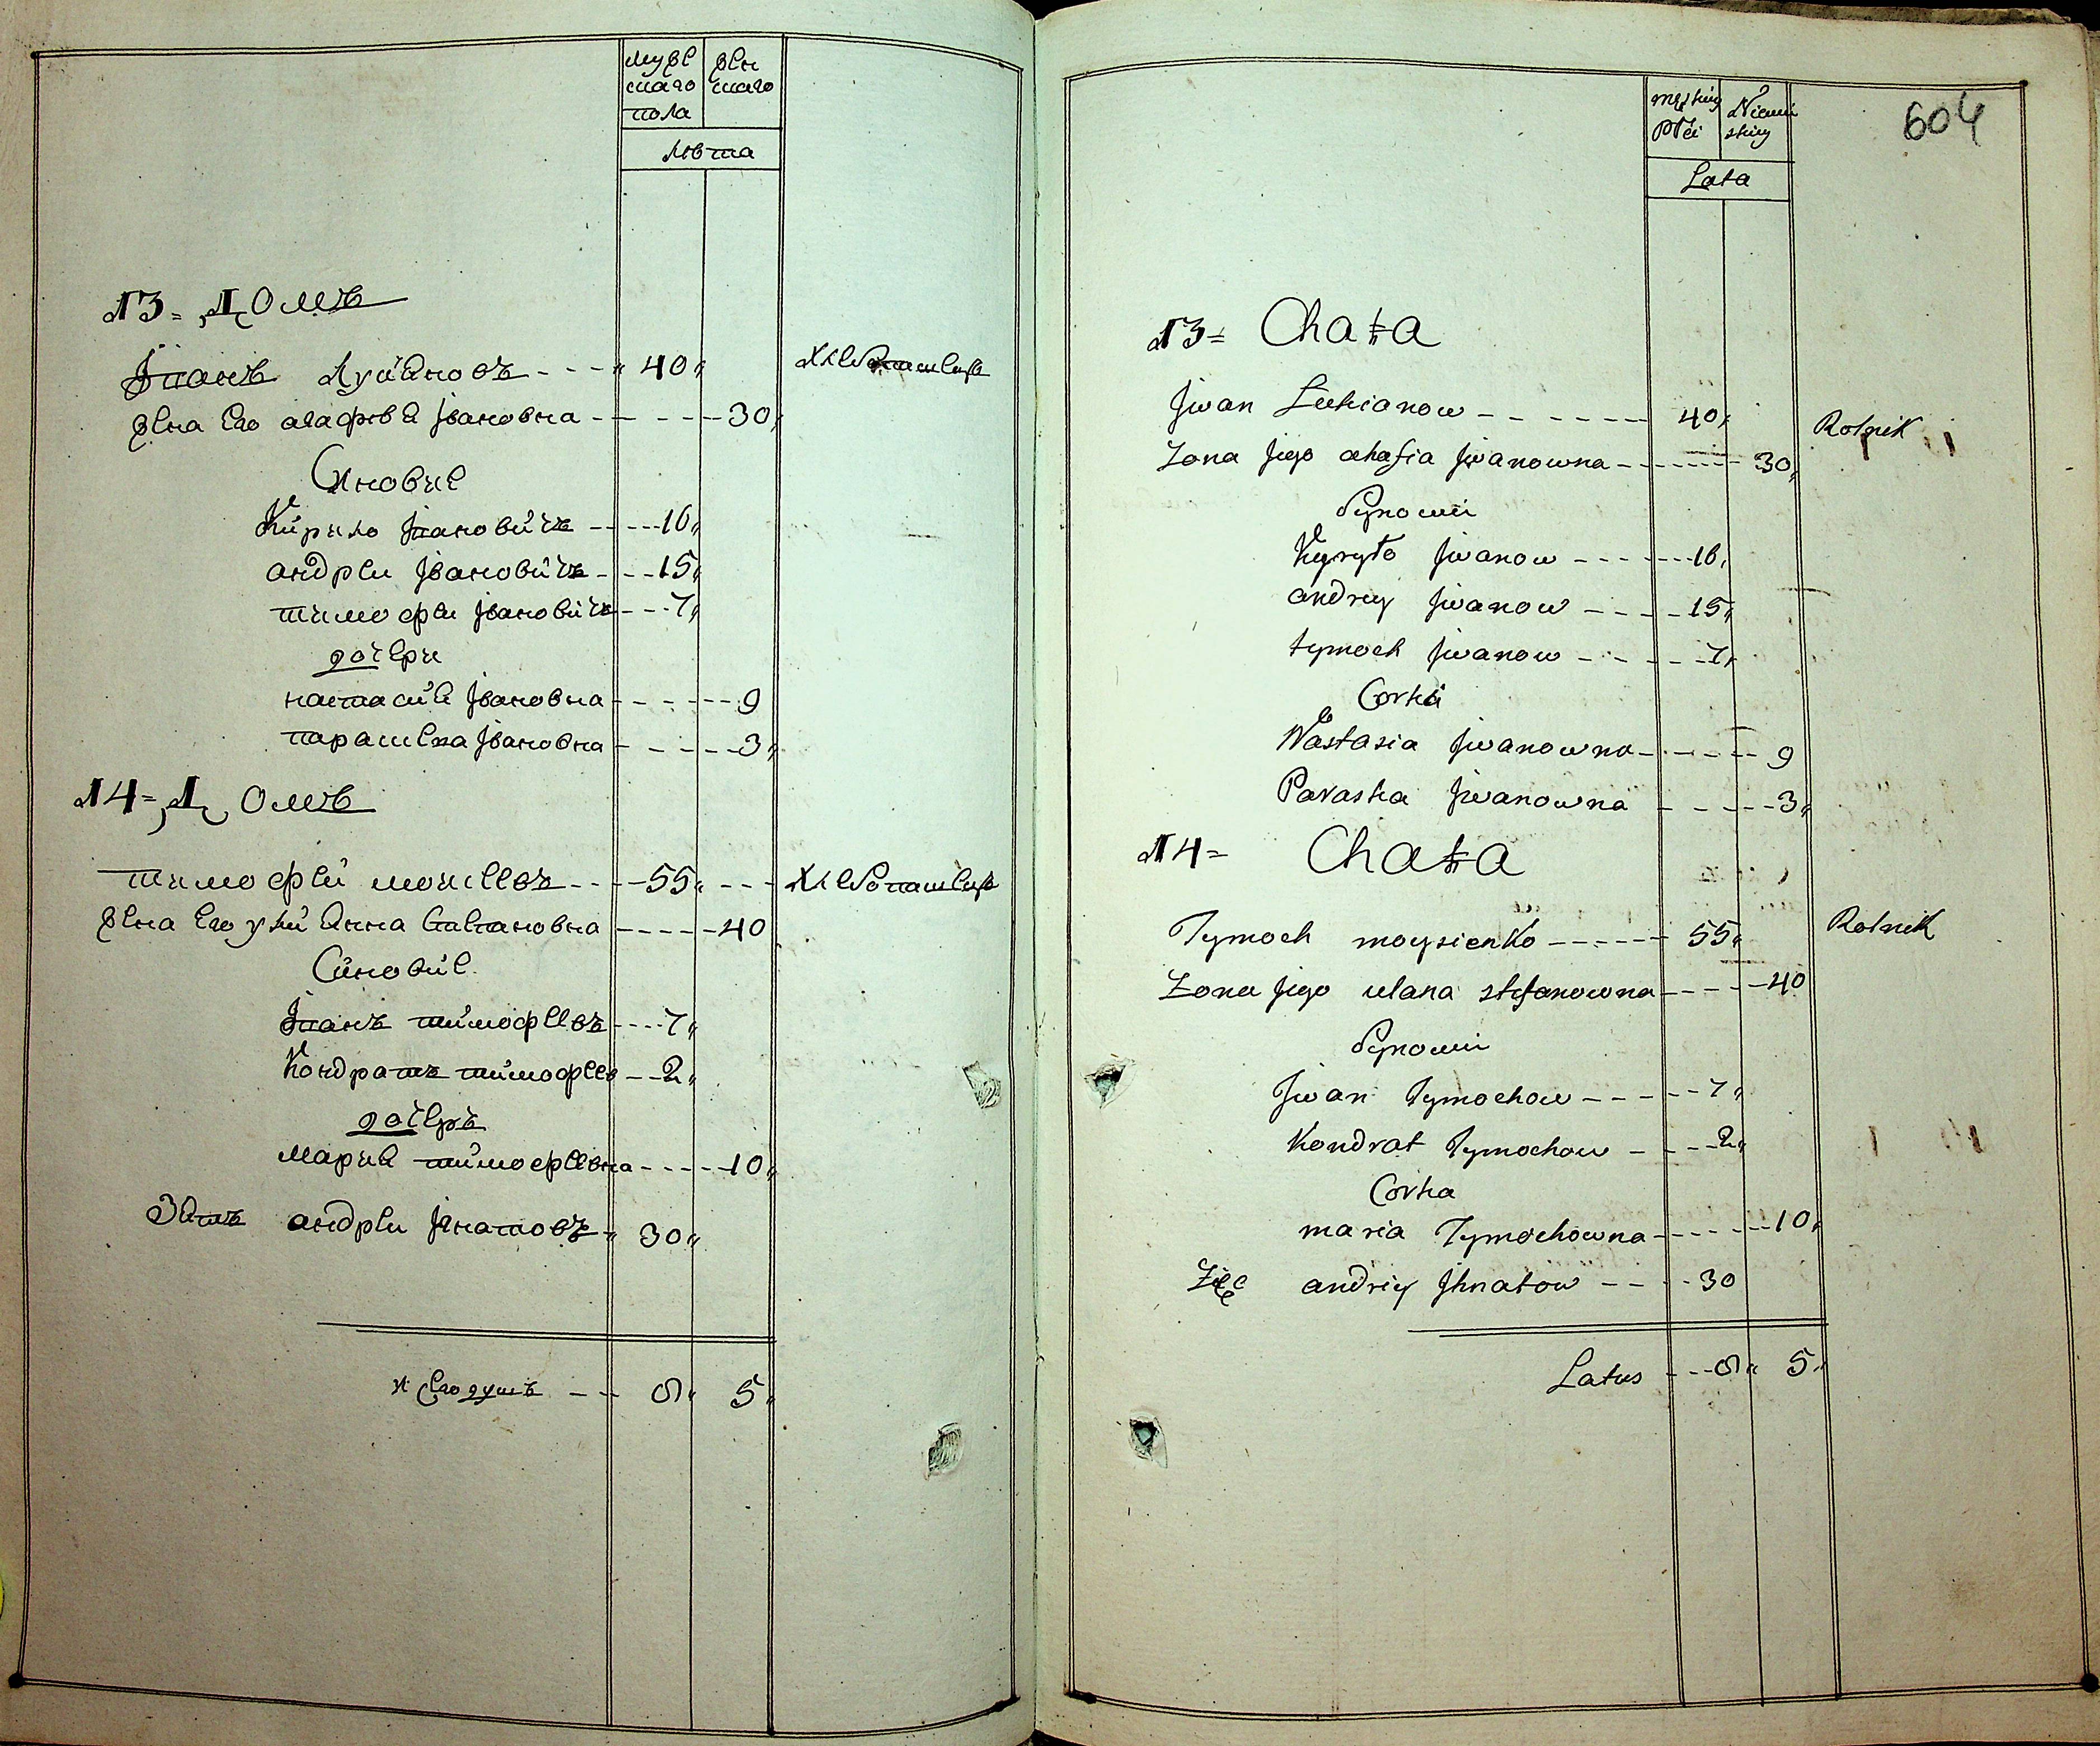 мужескаго пола
женскаго
лѣта
13 = Домъ
Іванъ Лукіяновъ - - - 40
хлебопашецъ
жена его агафія Івановна - - - - 30
Синовие
Кирило Івановичъ - - - 16
андрей Івановичъ - - - 15
тимофей Івановичъ - - - 7
дочери
настасия Івановна - - - - - 9
параска Івановна - - - - - 3
14 = Домъ
тимофей моисеевъ - - - 55 - - -
хлебопашецъ
жена его улиянна степановна - - - - - 40
Синовие
Іванъ тимофеевъ - - - 7
Кондратъ тимофеев - - 2
дочеръ
Мария тимофеевна - - - - - 10
Зять андрей Ігнатовъ - 30
всего душъ - - 9 5
604
męskiey płci
Niewiskiey
Lata
13 = Chata
Jwan Lukianow - - - - - - 40
Rolnik
Żona jego ahafia Jwanowna - - - - - - 30
Synowii
Kyryło Jwanow - - - - - - 16
andrey Jwanow - - - - 15
tymoch Jwanow - - - - - 7
Corki
Nastasia Jwanowna - - - - - 9
Paraska Jwanowna - - - - - 3
14 = Chata
Tymoch moysienko - - - - - - 55
Rolnik
Żona jego ulana stefanowna - - - - - 40
Synowii
Jwan Tymochow - - - - - 7
Kondrat Tymochow - - - 2
Corka
maria Tymochowna - - - - - - 10
Zięc andriy Jhnatow - - - - 30
Latus - - - 9 5